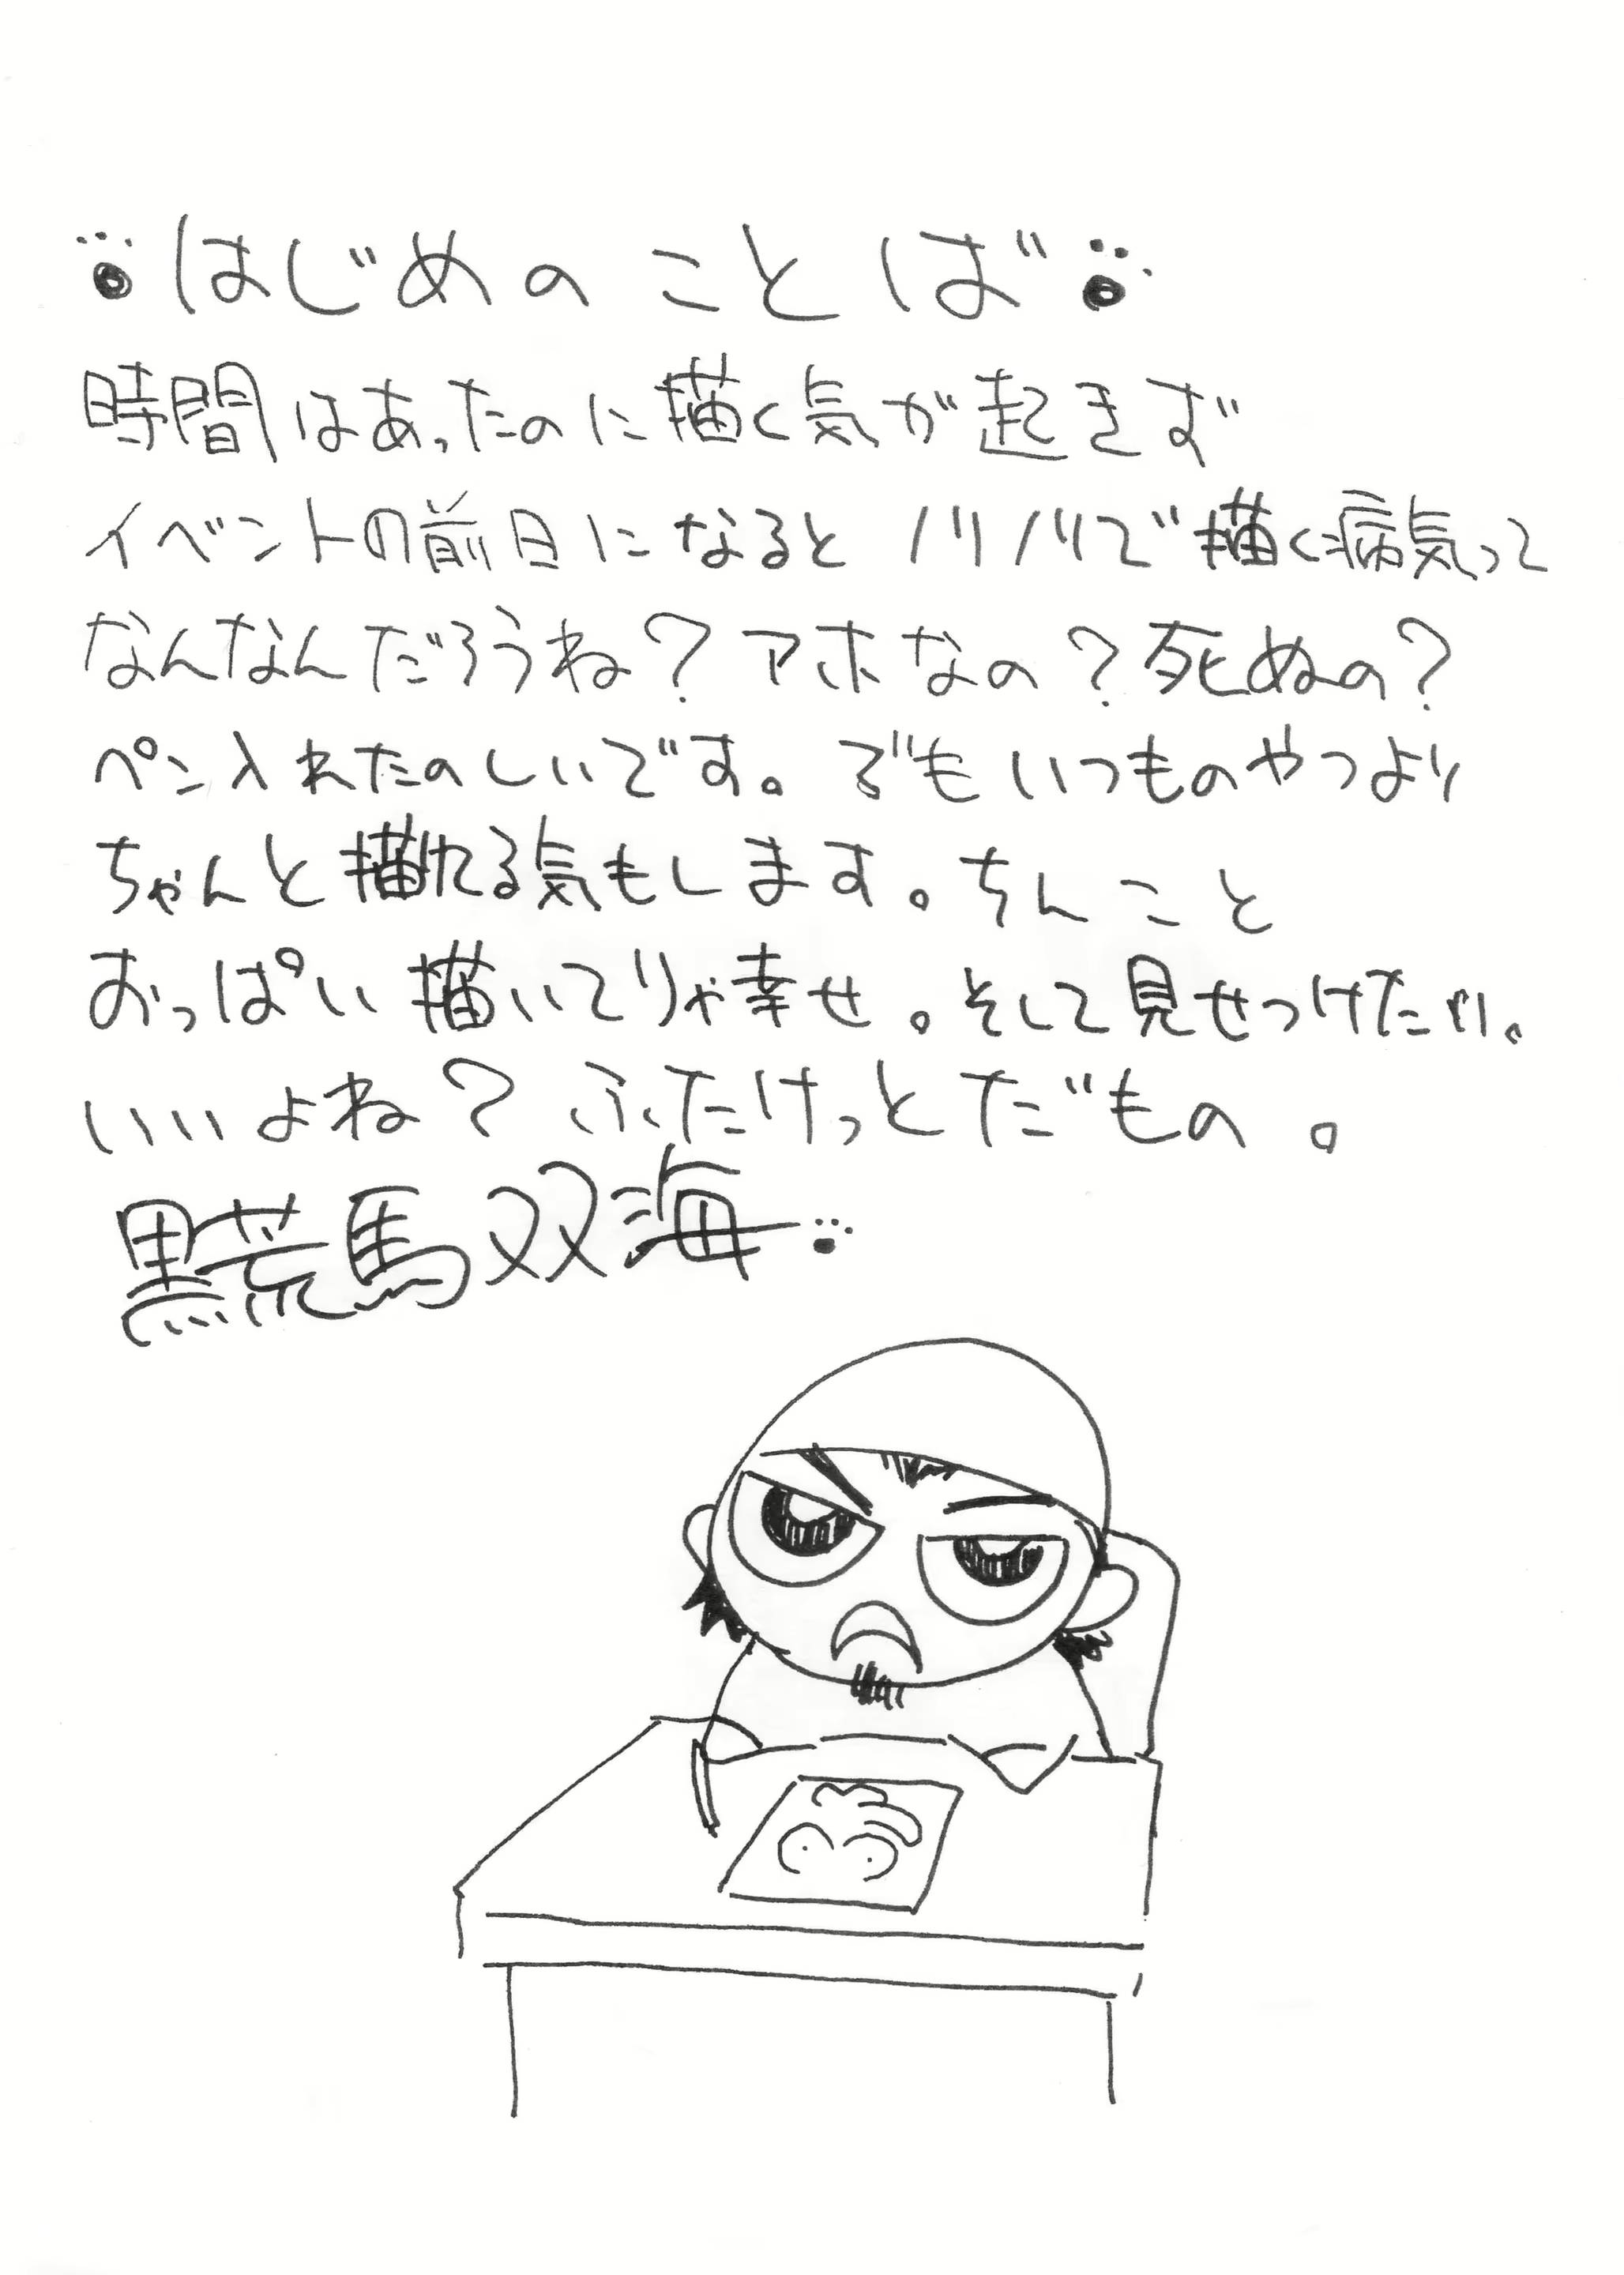 はじめのことば
時間はあったのに描く気が起きず
イベントの前日になるとノリノリで描く病気って
なんなんだろうね？アホなの？死ぬの？
ペン入れたのしいです。でもいつものやつより
ちゃんと描れる気もします。ちんこと
おっぱい描いてりゃ幸せ。そして見せつけたい。
いいよね？ふたけっとだもの。
黒荒馬双海